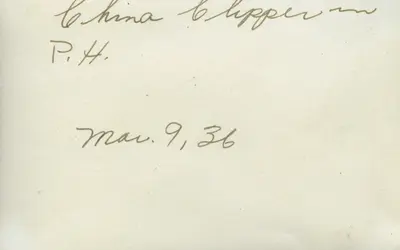 China Clipper in
P.H.
Mar. 9, 36